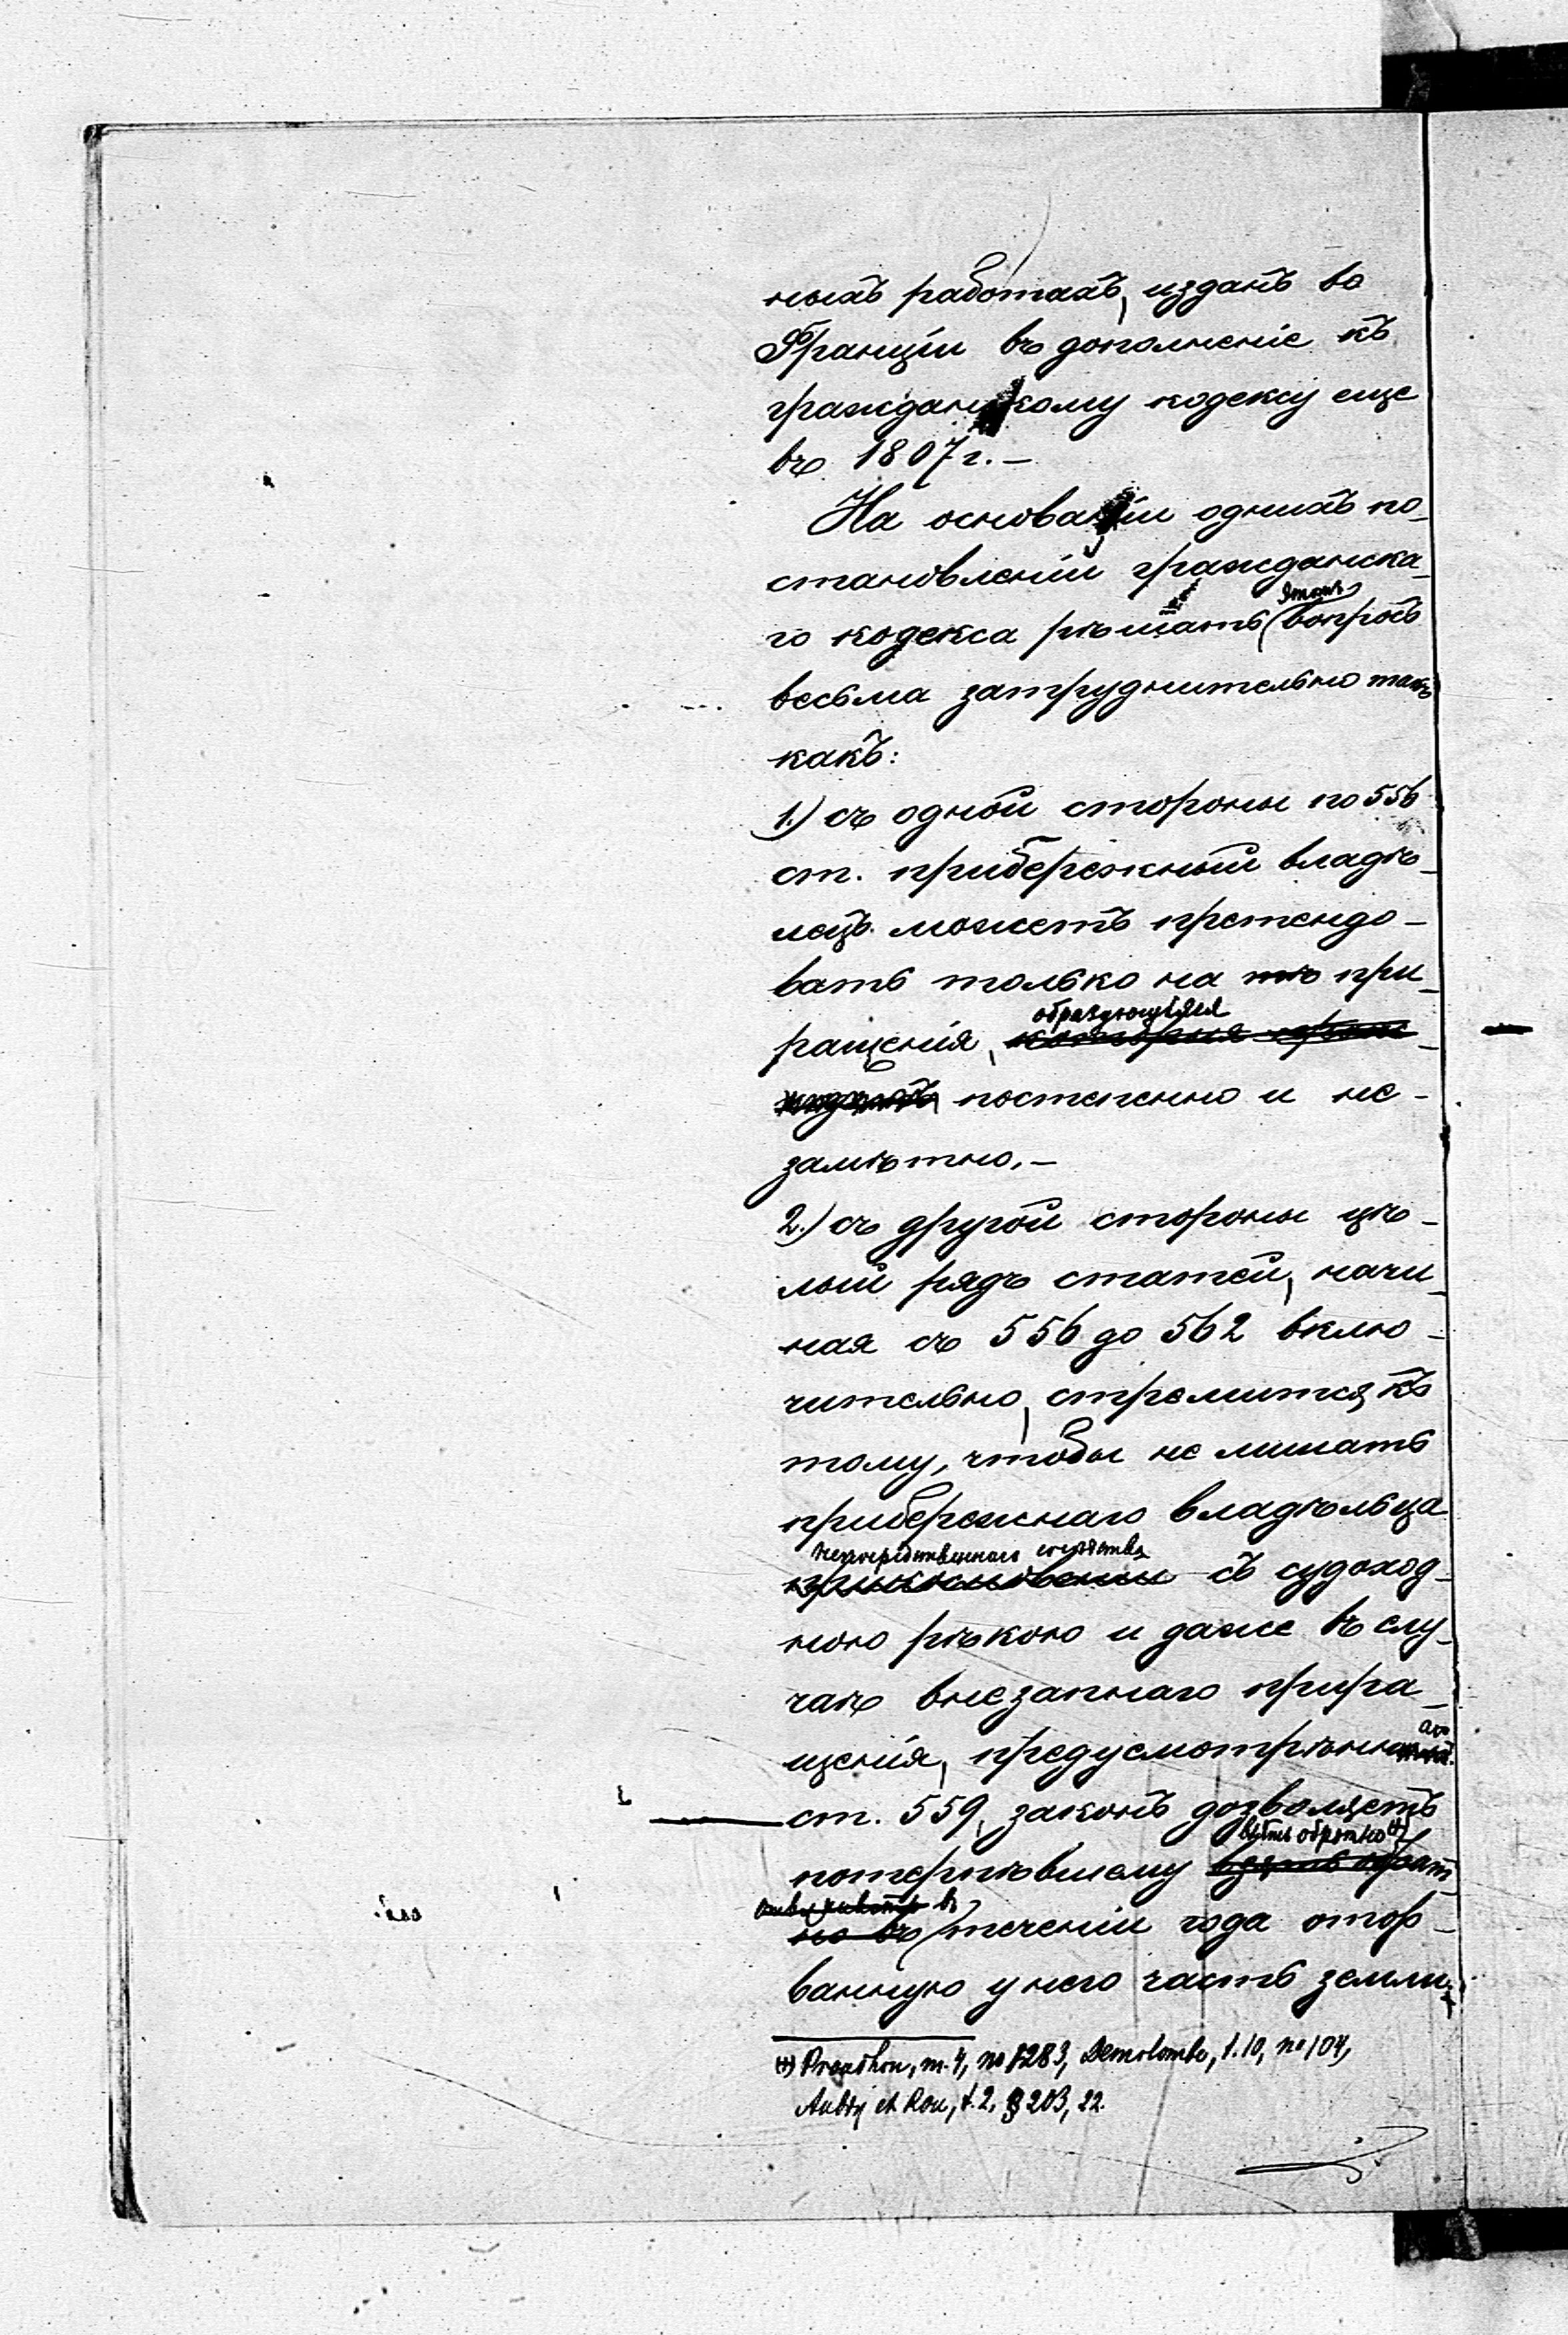 ныхъ работахъ, изданъ во
Франціи въ дополненіе къ
гражданскому кодексу еще
въ 1807 г. —
На основаніи однихъ по-
становленій гражданска-
го кодекса рѣшать этотъ вопросъ
весьма затруднительно такъ
какъ:
1.) съ одной стороны по 556
ст. прибережный владѣ-
лецъ можетъ претендо-
вать только на тѣ при-
ращенія, образующіяся
постепенно и не-
замѣтно. —
2.) съ другой стороны цѣ-
лый рядъ статей, начи-
ная съ 556 до 562 вклю-
чительно, стремится къ
тому, чтобы не лишать
прибережнаго владѣльца
непосредственнаго сосѣдства
прикосновенія съ судоход-
ною рѣкою и даже въ слу-
чаѣ внезапнаго прира-
щенія, предусмотрѣннаго
ст. 559, законъ дозволяетъ
обратно
потерпѣвшему взять обрат
въ
но въ теченіи года отор-
ванную у него часть земли.
(+) Proudhon, т. 4, no 1283, Demolombe, t. 10, no 104,
Aubry et Rau, t. 2, § 203, 22.